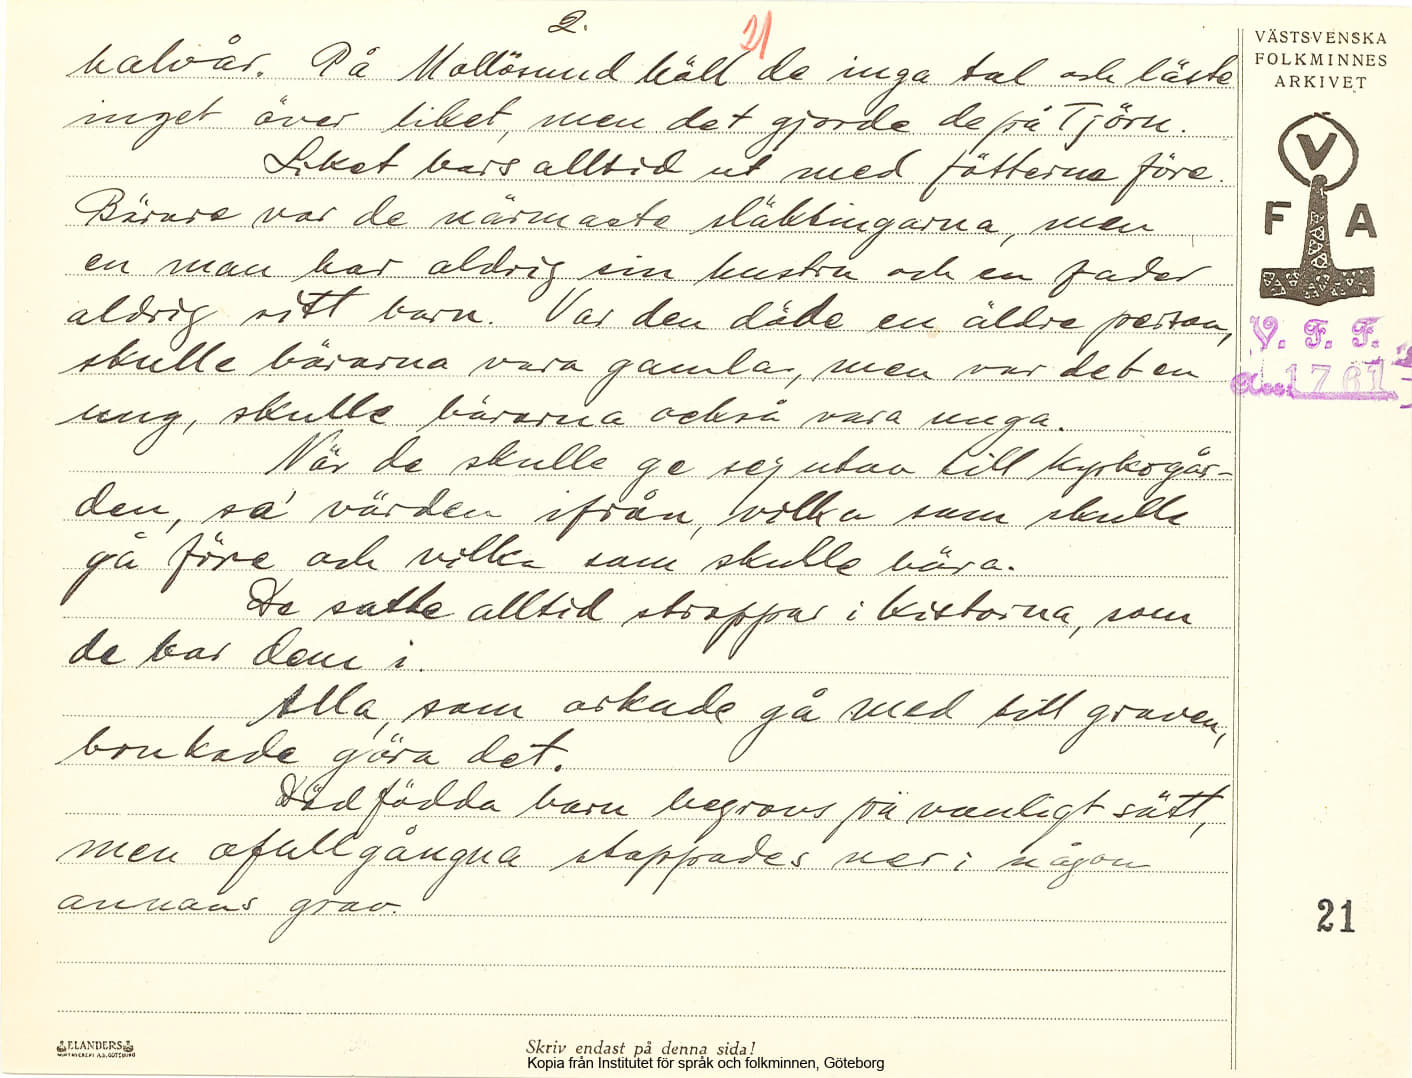 2.
21
halvår. På Mollösund höll de inga tal och läste
inget över liket, men det gjorde de på Tjörn.
Liket bars alltid ut med fötterna före.
Bärare var de närmaste släktingarna, men
en man bar aldrig sin hustru och en fader
aldrig sitt barn. Var den döde en äldre person,
skulle bärarna vara gamla, men var det en
ung, skulle bärarna också vara unga.
När de skulle ge sej utav till kyrkogår-
den, sa' värden ifrån, vilka som skulle
gå före och vilka som skulle bära.
De satte alltid stroppar i kistorna, som
de bar dem i.
Alla, som orkade gå med till graven,
brukade göra det.
Dödfödda barn begravs på vanligt sätt,
men ofullgångna stoppades ner i någon
annans grav.
VÄSTSVENSKA
FOLKMINNES
ARKIVET
V
F A
V. F. F.
Acc. 1761
21
ELANDERS
Skriv endast på denna sida!
Kopia från Institutet för språk och folkminnen, Göteborg